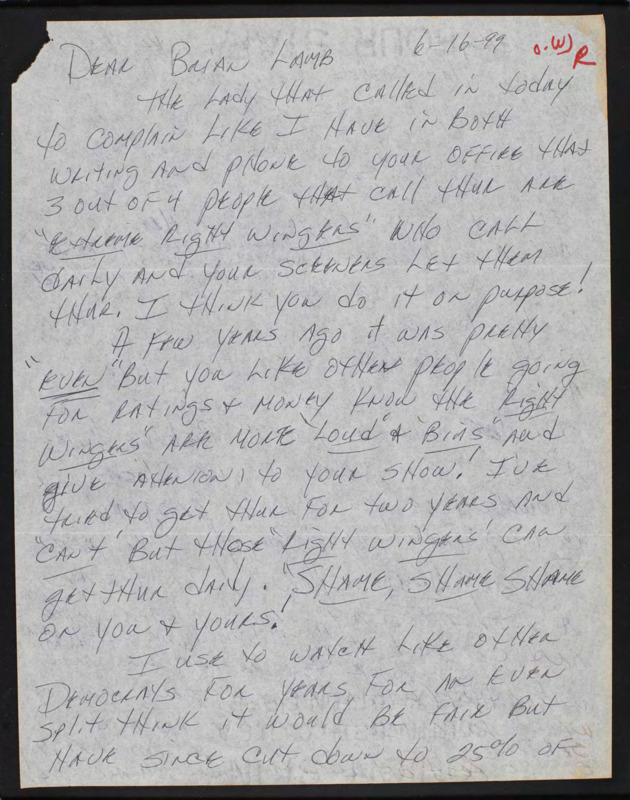 6-16-99 O.W) R
DEAR BRIAN LAMB
THE LADY THAT CALLED IN TODAY
TO COMPLAIN LIKE I HAVE IN BOTH
WRITING AND PHONE TO YOUR OFFIRE THAT
3 OUT OF 4 PEOPLE THAT CALL THUR ARE
"EXTREME RIGHT WINGERS" WHO CALL
DAILY AND YOUR SCREENERS LET THEM
THUR. I THINK YOU DO IT ON PURPOSE!
A FEW YEARS AGO IT WAS PRETTY
"EVEN" BUT YOU LIKE OTHER PEOPLE GOING
FOR RATINGS & MONEY KNOW THE RIGHT
WINGERS" ARE MORE "LOUD" & "BIAS" AND
GIVE ATTENION, TO YOUR SHOW! I'VE
TRIED TO GET THUR FOR TWO YEARS AND
"CAN'T" BUT THOSE "RIGHT WINGERS' CAN
GET THUR DAILY. "SHAME, SHAME SHAME
ON YOU & YOURS!
I USE TO WATCH LIKE OTHER
DEMOCRAYS FOR YEARS, FOR AN EVEN
SPLIT THINK IT WOULD BE FAIR BUT
HAVE SINCE CUT DOWN TO 25% OF